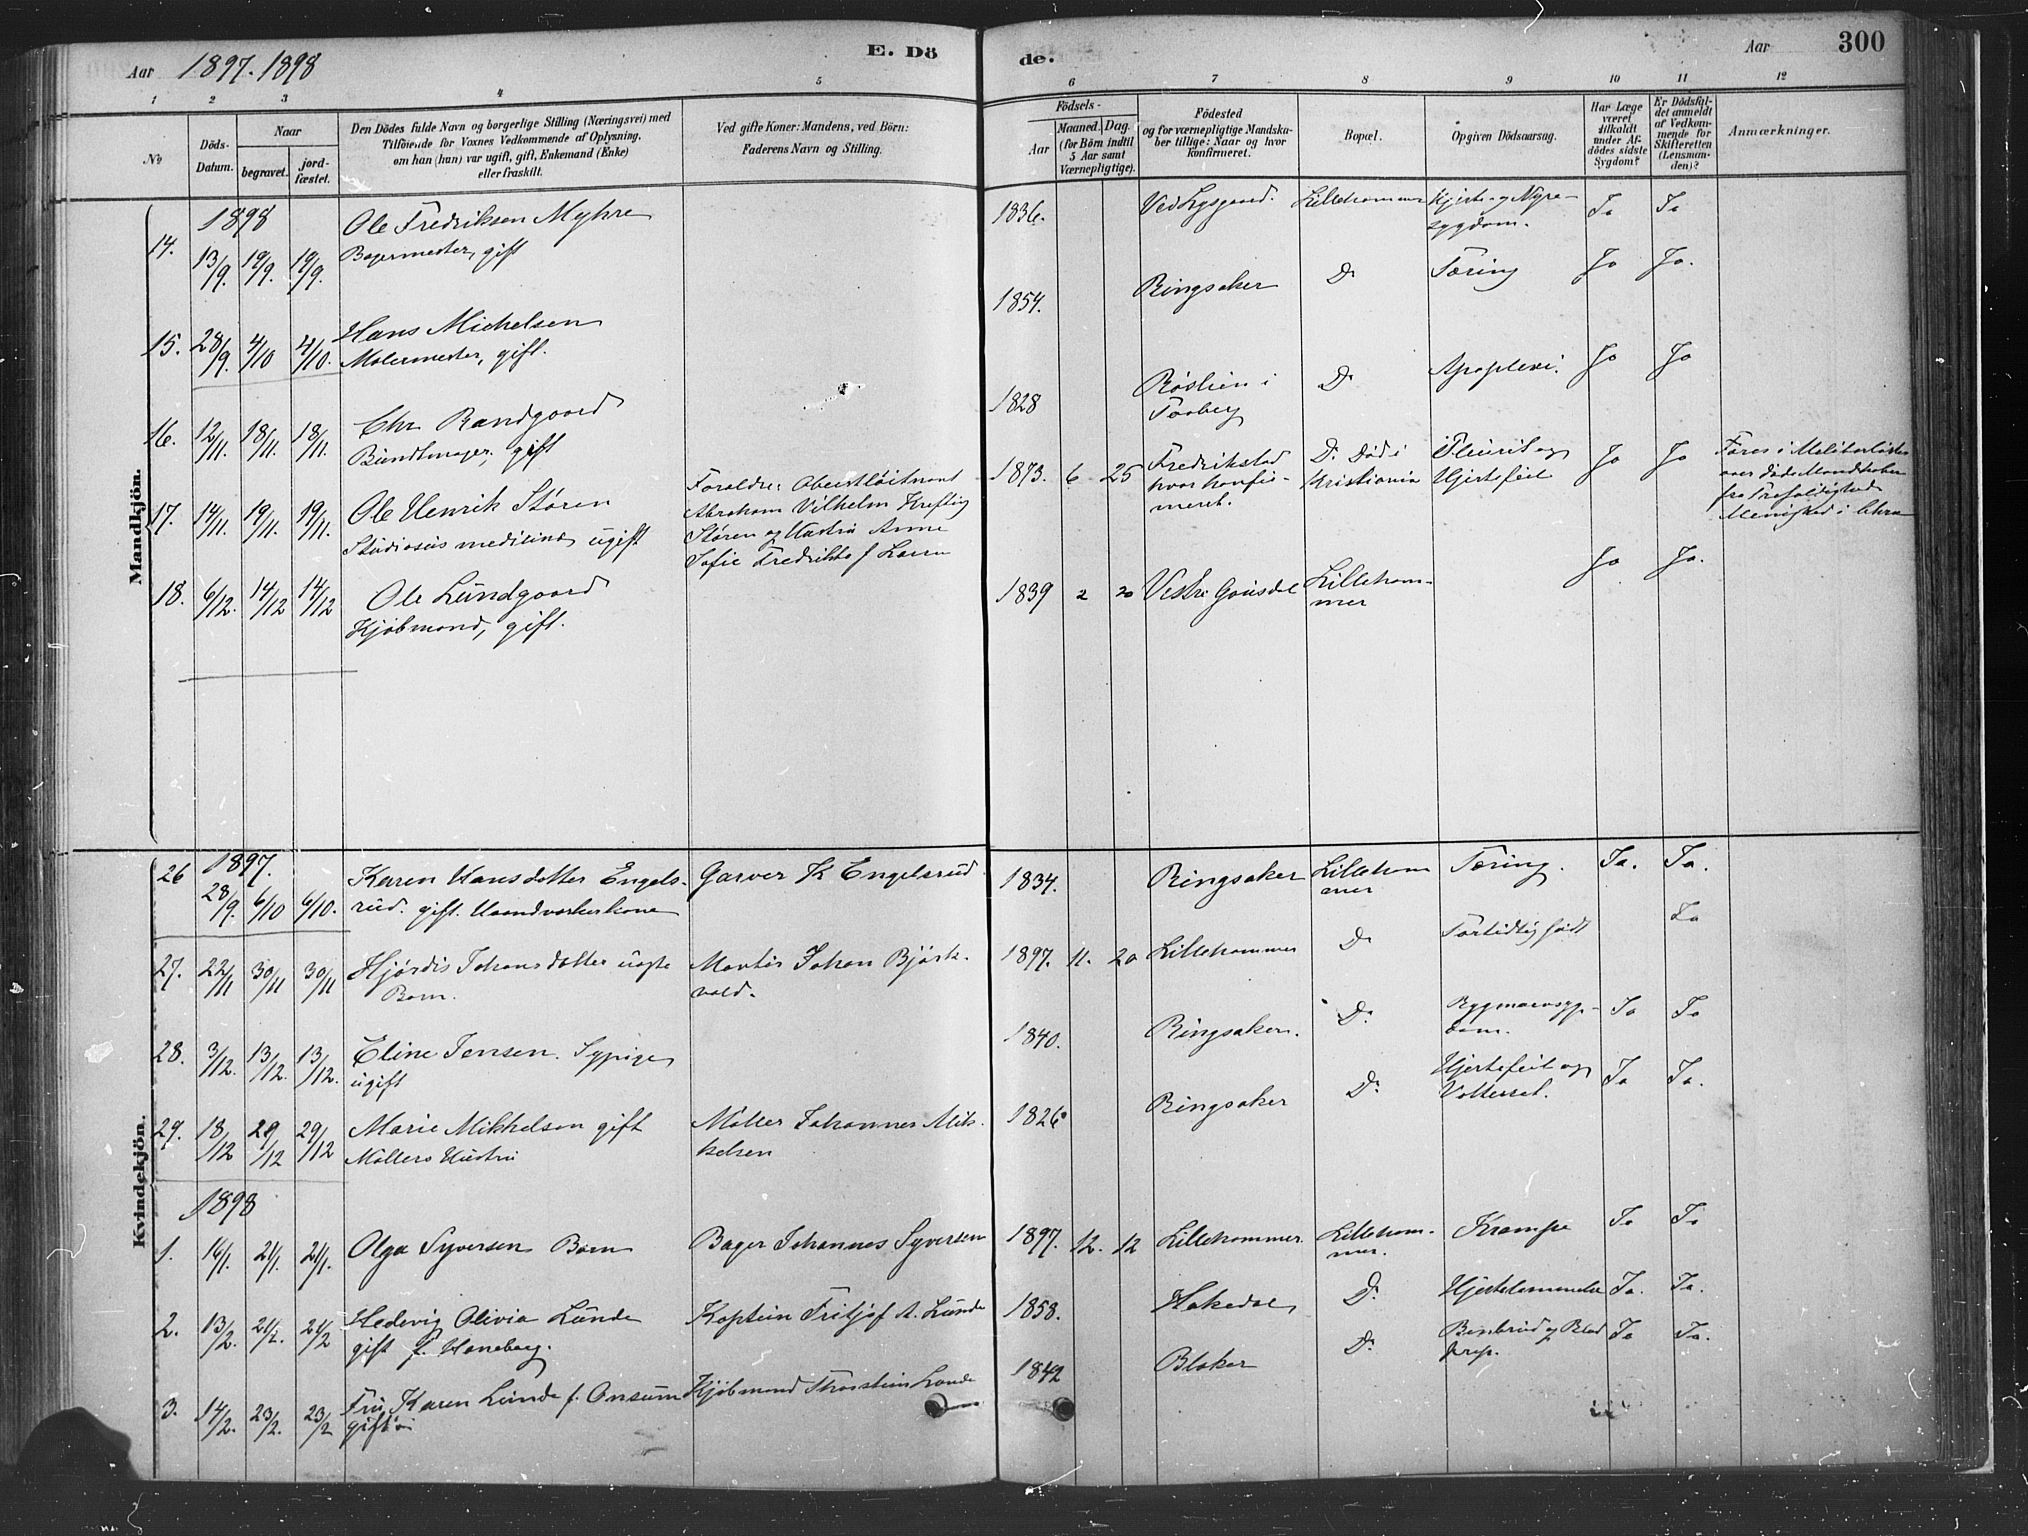 Aar 1897. 1898
E. Dö
de.
Aar
300
1 2 3 4 5 6 7 8 9 10 11 12
No
Döds-
Datum.
Naar
begravet.
jord-
fæstet.
Den Dödes fulde Navn og borgerlige Stilling (Næringsvei) med
Tilföiende for Voxnes Vedkommende af Oplysning,
om han (hun) var ugift, gift, Enkemand (Enke)
eller fraskilt.
Ved gifte Koner: Mandens, ved Börn:
Faderens Navn og Stilling.
Födsels-
Aar
Maaned. Dag.
(for Börn indtil
5 Aar samt
Værnepligtige).
Födested
og for værnepligtige Mandska-
ber tillige: Naar og hvor
konfirmeret.
Bopæl.
Opgiven Dödsaarsag.
Har Læge
været
tilkaldt
under Af-
dödes sidste
Sygdom?
Er Dödsfal-
det anmeldt
af Vedkom-
mende for
Skifteretten
(Lensman-
den)?
Anmærkninger.
Mandkjön.
1898
14. 13/9. 19/9. 19/9. Ole Fredriksen Myhre
Bagermester, gift
1836. Ved Lysgaard. Lillehammer Hjerte- og Nyre-
sygdom. Ja Ja
15. 28/9. 4/10 4/10. Hans Michelsen
Malermester, gift.
1854. Ringsaker Do Tæring Ja Ja.
16. 12/11. 18/11. 18/11. Chr Randgaard
Buntmager, gift
1828 Röslien i
Faaberg Do Apoplexi. Ja Ja
17. 14/11. 19/11. 19/11. Ole Henrik Støren
Studiosus medicinæ ugift
Forældre: Oberstløitnant
Abraham Vilhelm Krefting
Støren og Hustru Anne
Sofie Fredrikke f
1873. 6 25 Fredrikstad
hvor konfir-
meret. Do Död i
Kristiania Pleurit og
Hjertefeil Ja Ja
Føres i
over døde Mandskaber
fra Trefoldighed
Menighed i Chra
18. 6/12. 14/12 14/12 Ole Lundgaard
Kjøbmand, gift.
1839 2 20 Vestre Gausdal Lilleham-
mer Ja Ja.
Kvindekjön.
1897.
26 28/9. 6/10 6/10. Karen Hansdatter Engels-
rud. gift. Haandværkerkone
Garver K Engelsrud
1834. Ringsaker Lilleham
mer Tæring. Ja. Ja.
27. 22/11 30/11 30/11 Hjørdis Johansdatter uægte
Barn.
Murtør Johan Björk-
vold.
1897. 11. 20 Lillehammer Do Fortidlig født Ja
28. 3/12. 13/12. 13/12. Eline Jensen. Sypige
ugift
1840. Ringsaker. Do Rygmarvsyg-
dom. Ja Ja
29. 18/12 29/12 29/12 Marie Mikkelsen gift
Møllers Hustru
Møller Johannes Mik-
kelsen
1826. Ringsaker Do Hjertefeil og
Vattersot. Ja Ja.
1898
1. 16/1. 21/1. 21/1. Olga Syversen Barn
Bager Johannes Syversen
1897. 12. 12 Lillehammer. Lilleham-
mer. Krampe Ja Ja
2. 13/2. 21/2. 21/2 Hedevig Olivia Lunde
gift f. Haneborg.
Kaptein Fritjof A. Lunde
1858. Hakedal Do Hjertelammelse Ja. Ja.
3. 14/2. 23/2. 23/2 Fru Karen Lunde f. Onsum
gift
Kjøbmand Thorstein Lunde
1842 Blaker Do Benbrud og Blod
prop. Ja Ja.